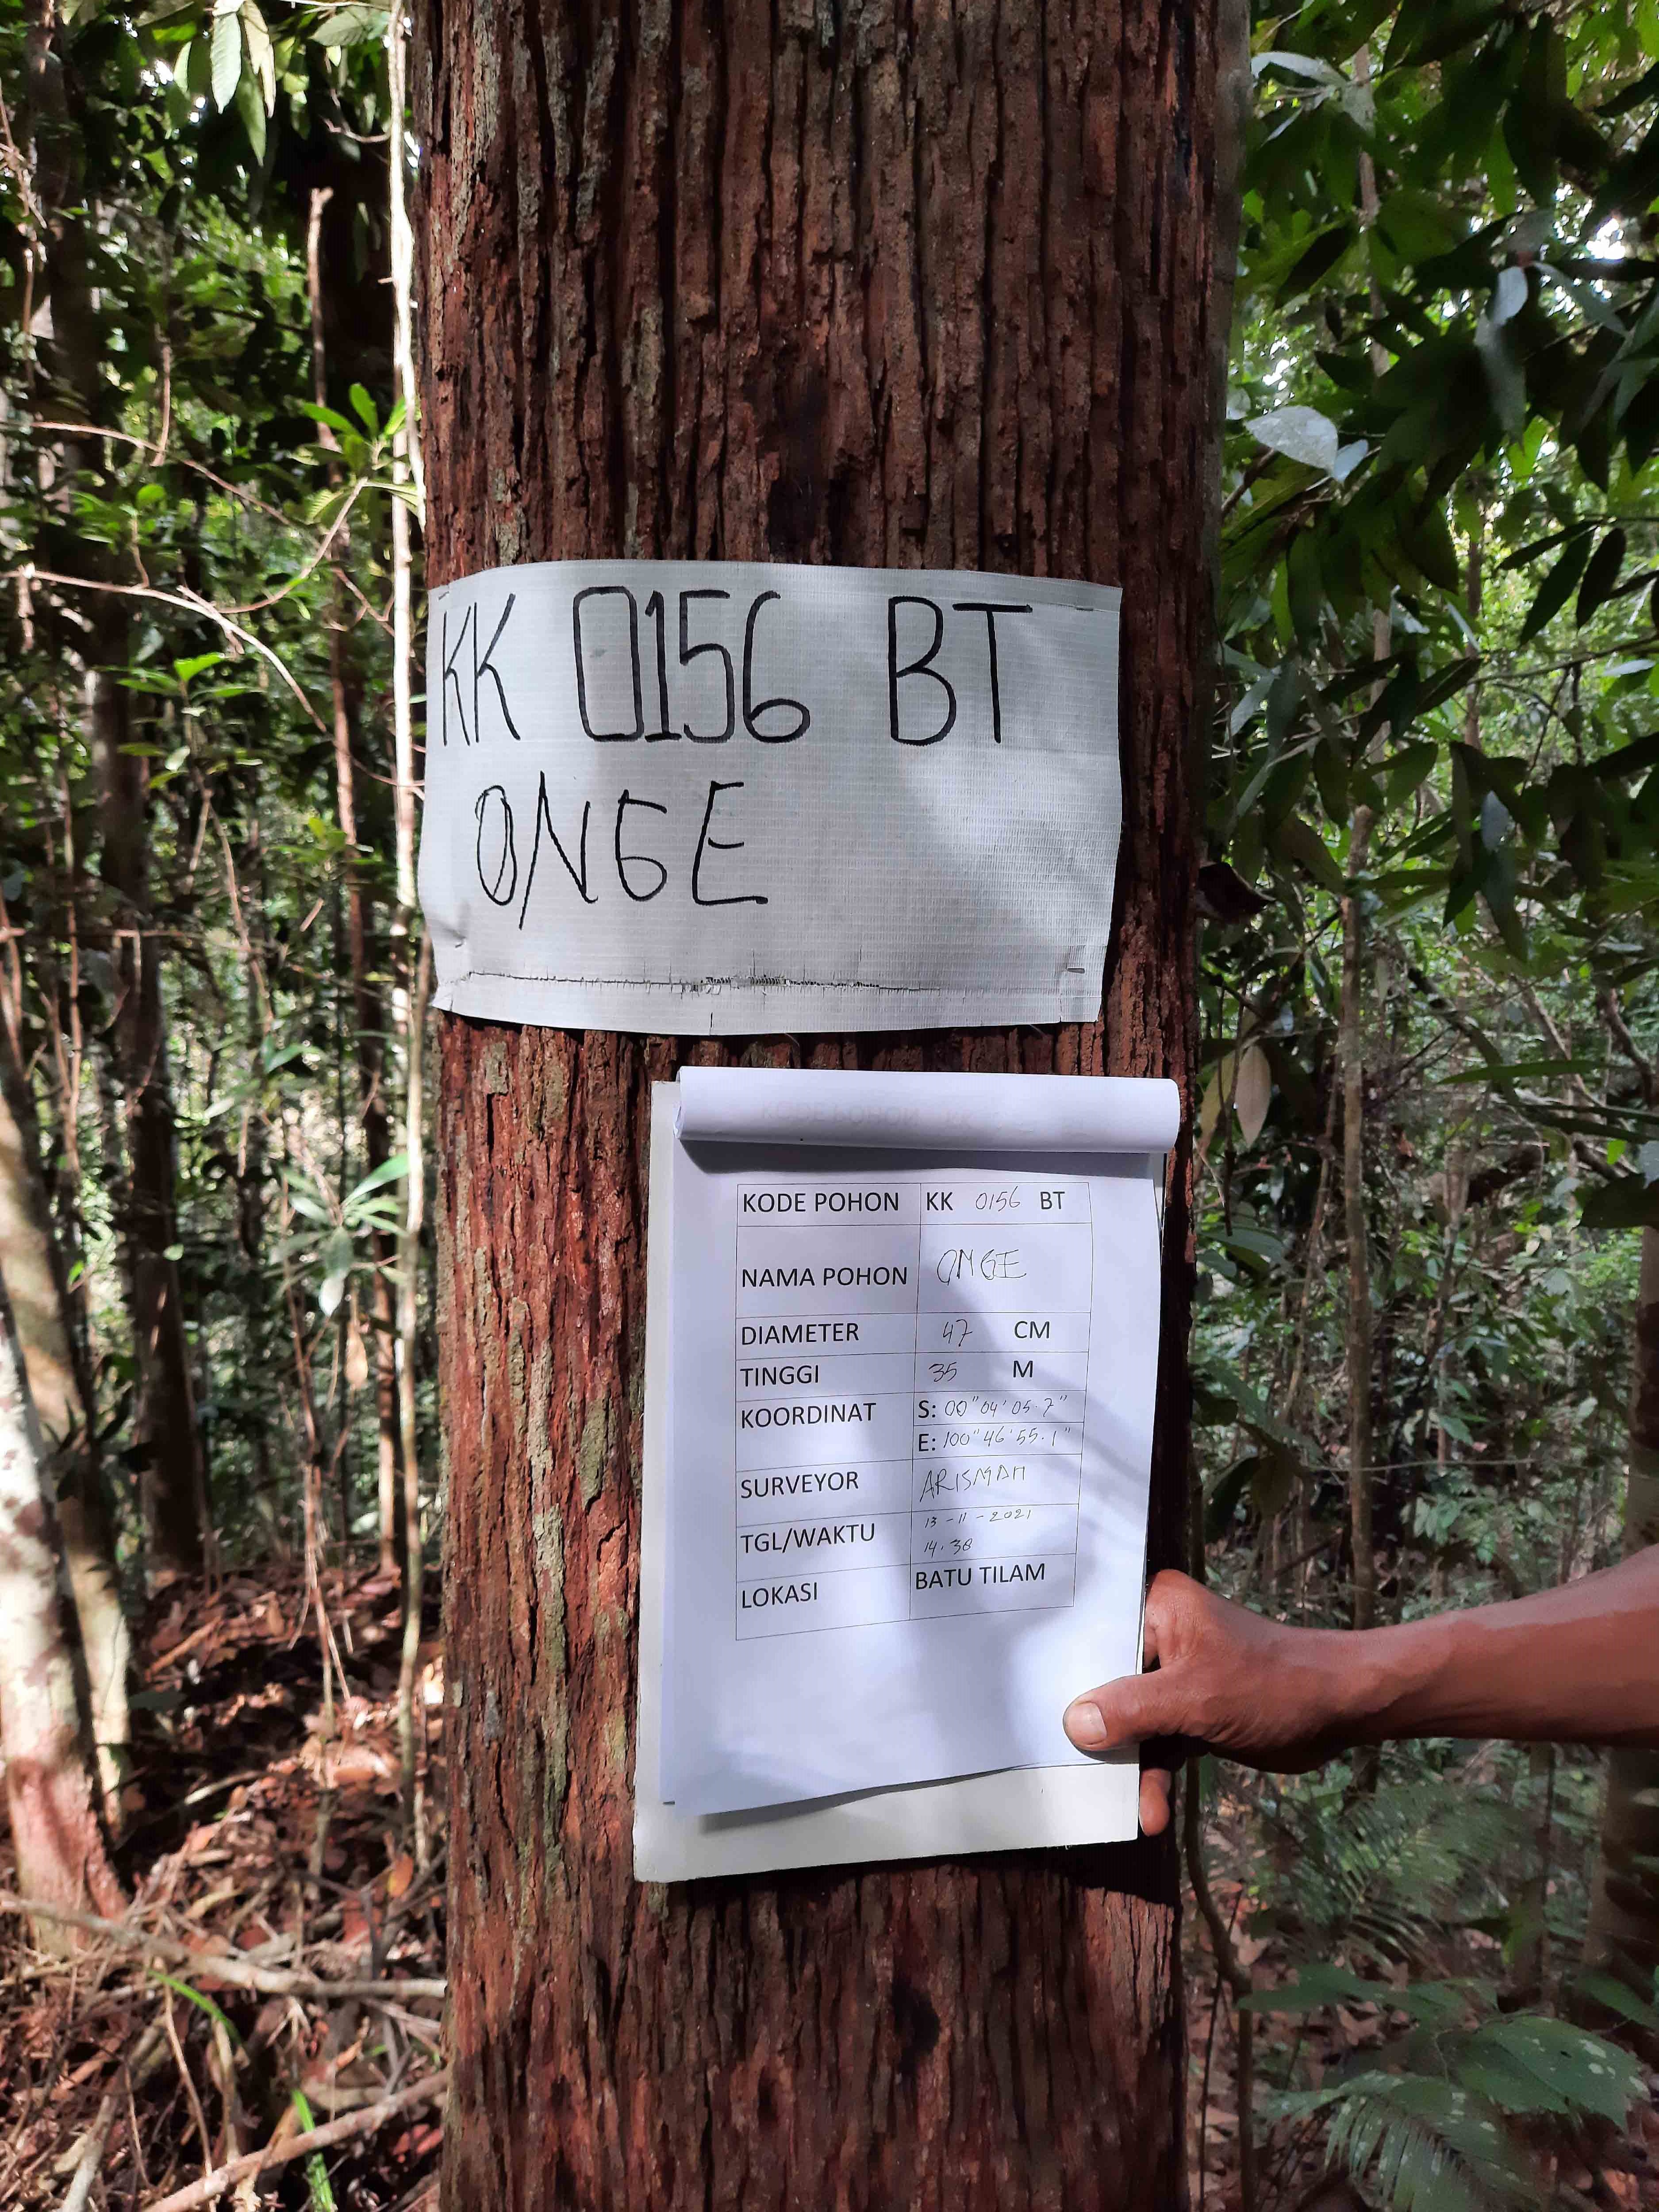 KK 0156 BT
ONGE
KODE POHON KK 0156 BT
NAMA POHON ONGE
DIAMETER 47 CM
TINGGI 35 M
KOORDINAT S: 00" 04' 05.7"
E: 100" 46' 55.1"
SURVEYOR ARISMAN
TGL/WAKTU 13-11-2021
14.30
LOKASI BATU TILAM